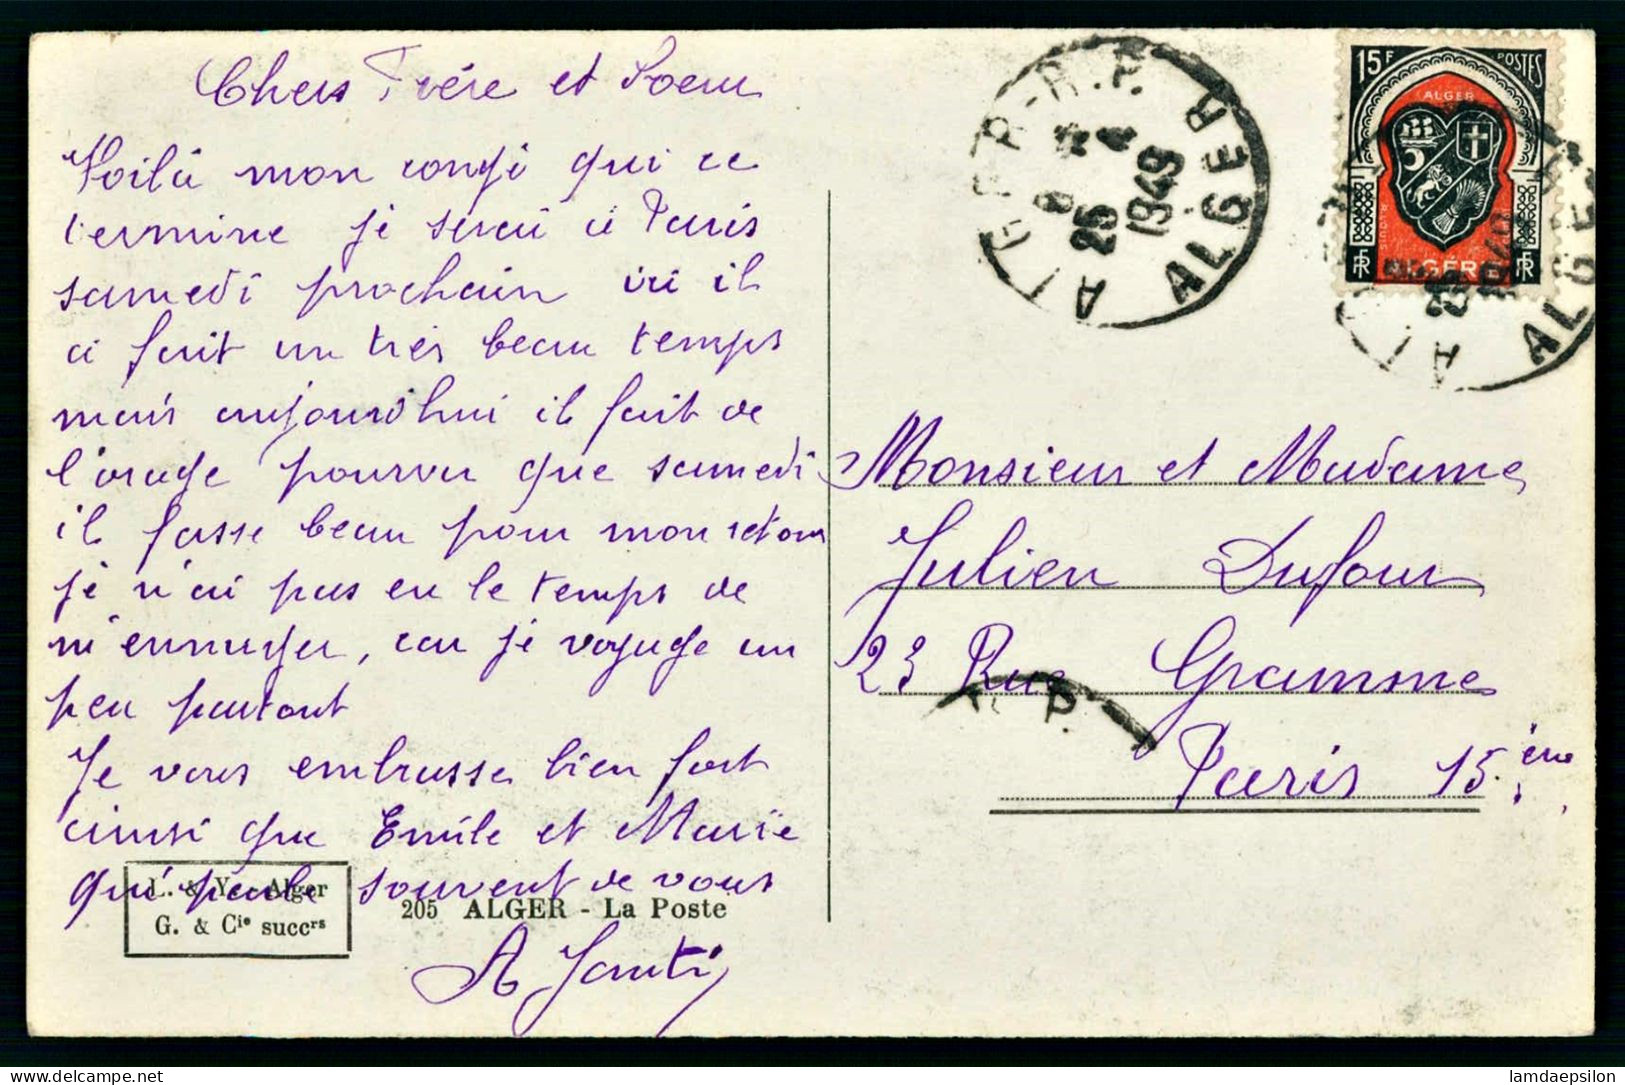 Chers Frère et Soeur
Voilà mon congé qui ce
termine je serai à Paris
samedi prochain ici il
a fait un très beau temps
mais aujourd'hui il fait de
l'orage pourvu que samedi
il fasse beau pour mon retour
je n'ai pas eu le temps de
m'ennuyer, car je voyage un
peu partout
Je vous embrasse bien fort
ainsi que Emile et Marie
qui parle souvent de vous
L. & Y. - Alger
G. & Cie succrs
205 ALGER - La Poste
15F POSTES
ALGER
ALGÉRIE
RF RF
ALGER R.P.
25 4
1949
ALGER
Monsieur et Madame
Julien Dufour
23 Rue Gramme
Paris 15.ème
R.P.
lamdaepsilon